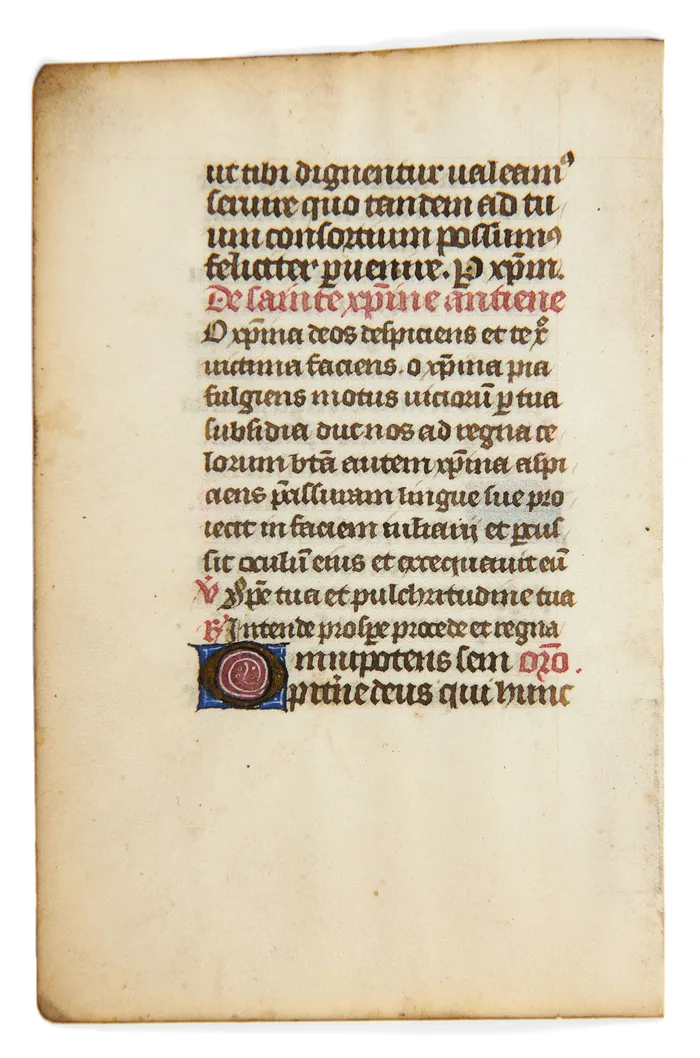 ut tibi dignentur ualeamꝰ
seruire quo tandem ad tu
um consortium possumꝰ
feliciter ꝑuenire. P xp̄m.
De sainte xp̄ine antiene
O xp̄ina deos despiciens et te
uictima faciens. o xp̄ina pia
fulgens motus uicioꝝ ꝑ tua
subsidia duc nos ad regna ce
lorum btā autem xp̄ina aspi
ciens lingue sue pro
iecit in faciem iuliani et ꝑcus
sit oculū eius et excequauit eū
V Spē tua et pulchritudine tua
R Intende prospe procede et regna
Omnipotens sem oro.
piterne deus qui hunc